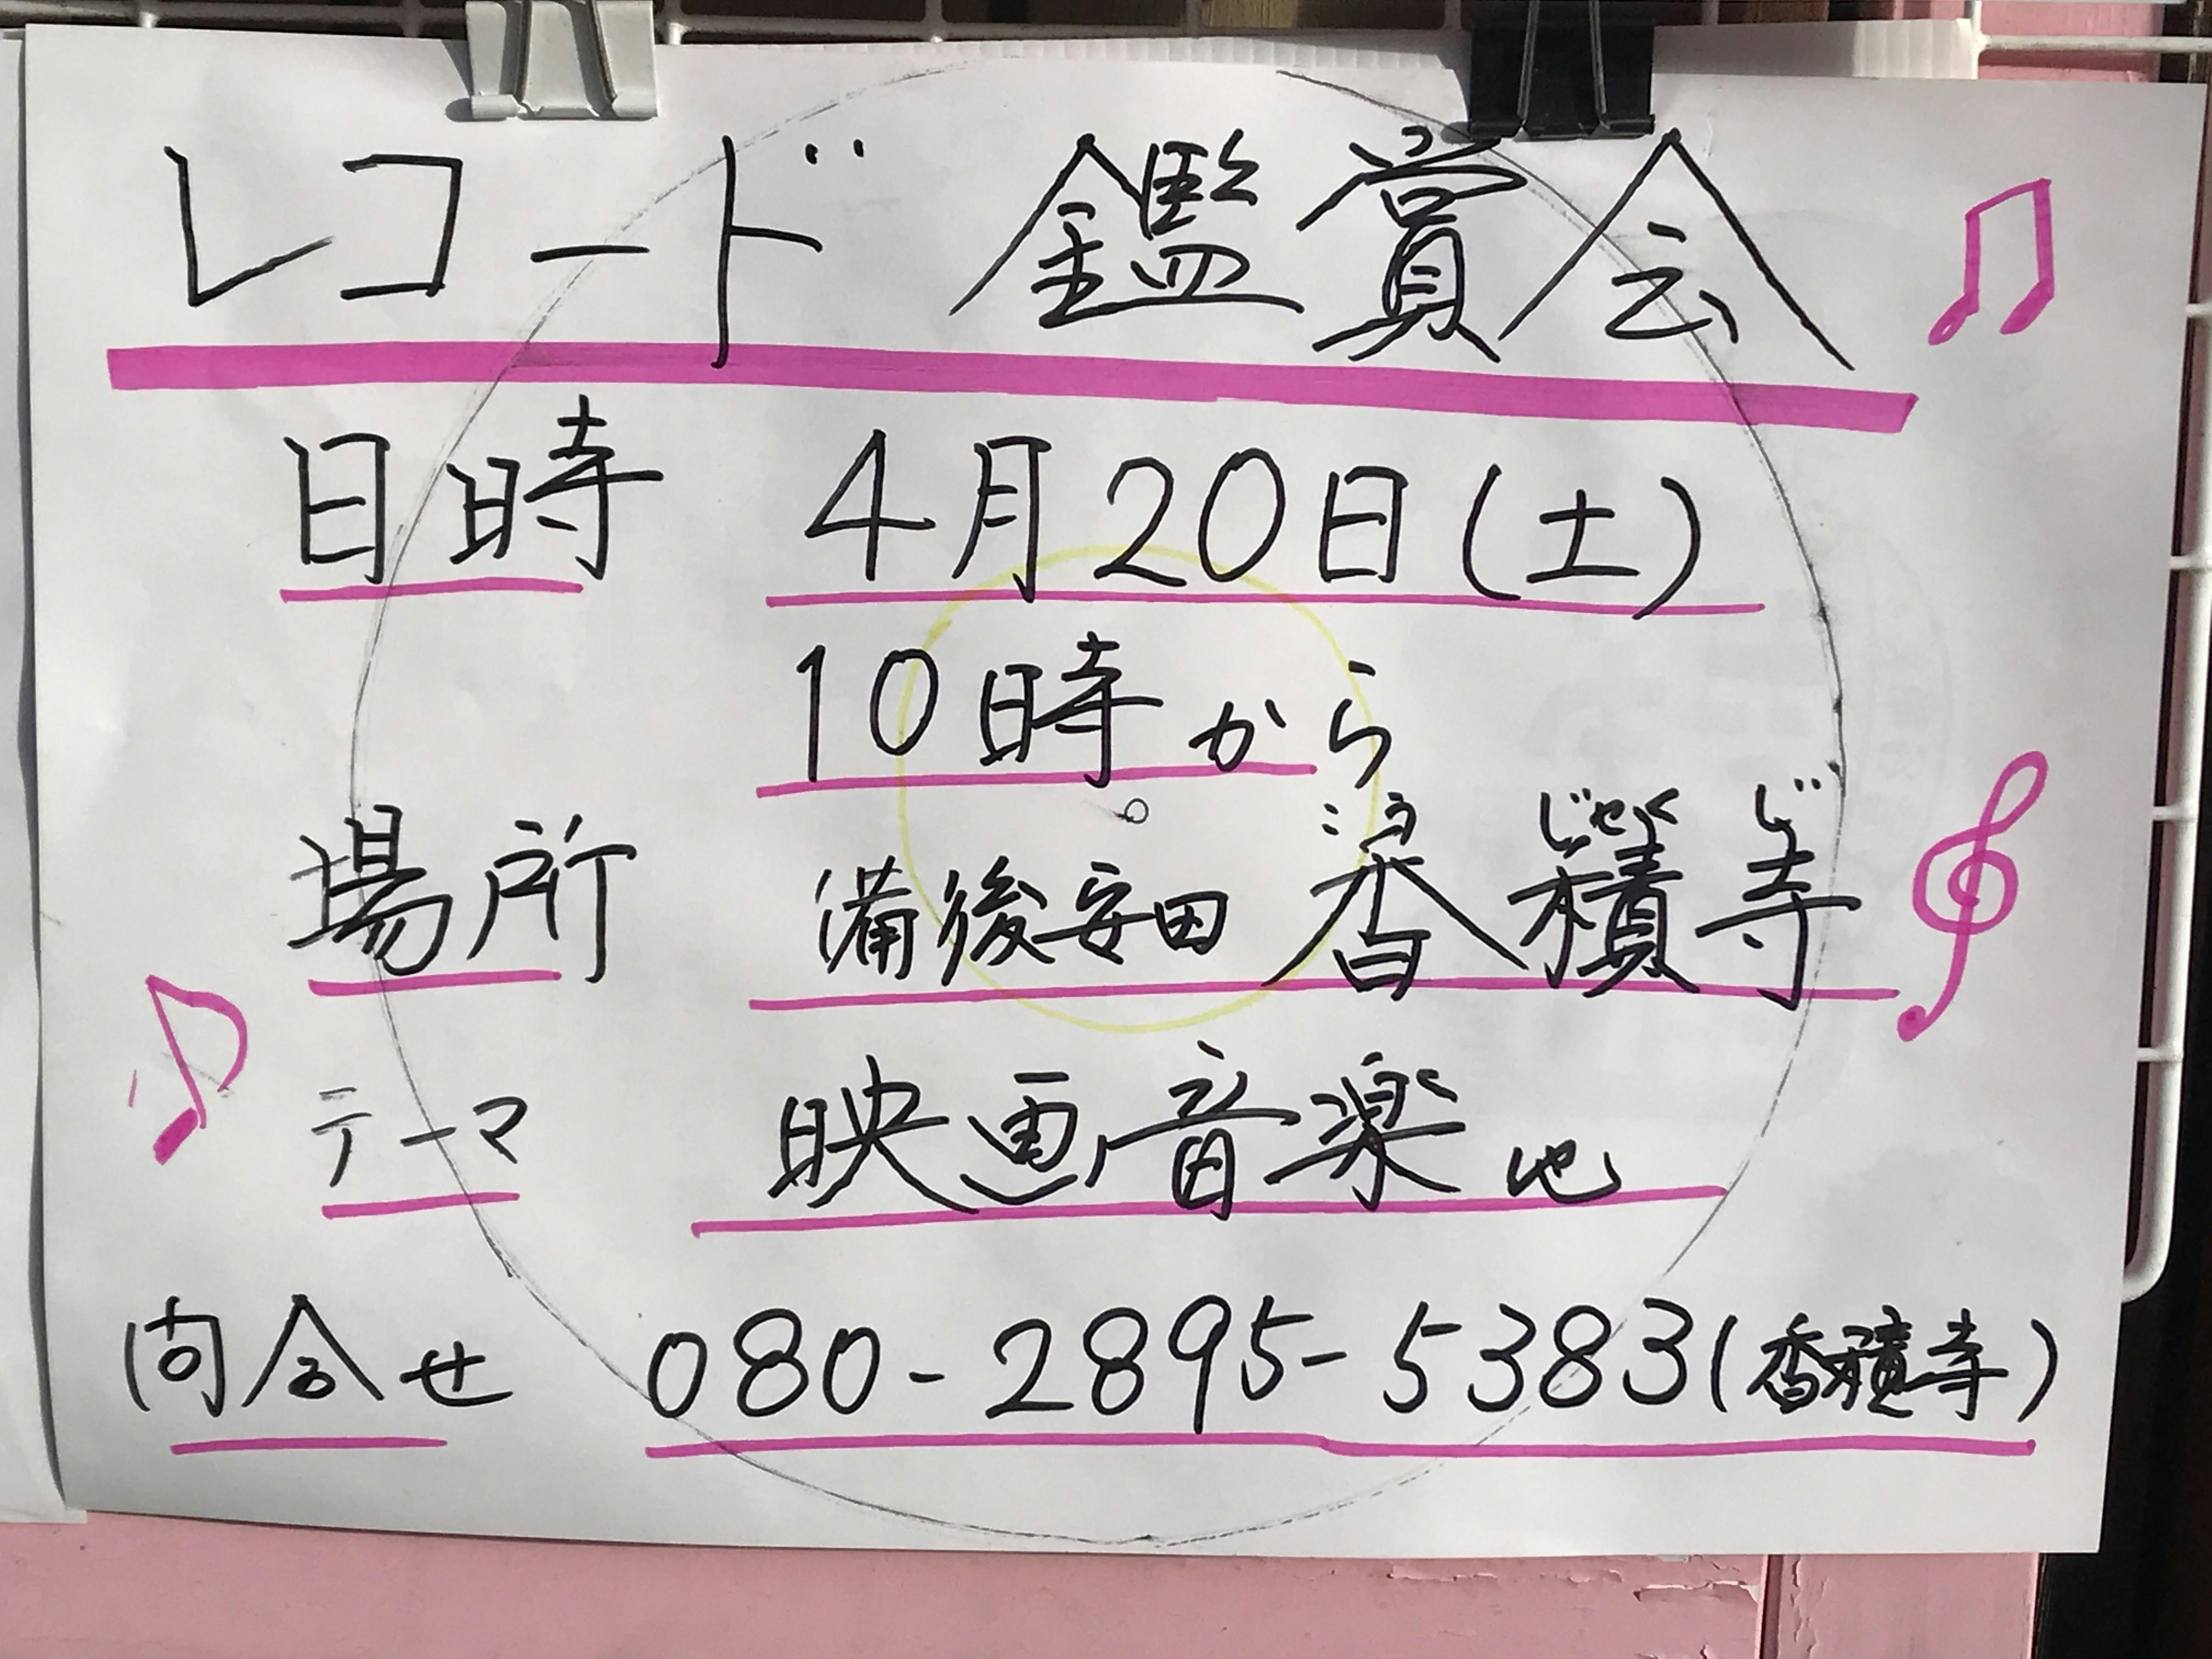 レコード 鑑賞会
日時 4月20日(土)
10時から
こう じゃく じ
場所 備後安田 香積寺
テーマ 映画音楽 他
問合せ 080-2895-5383(香積寺)